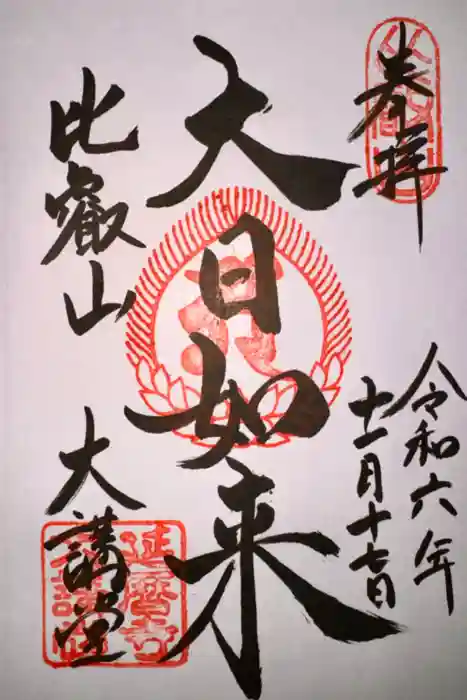 奉拝
令和六年
十一月十七日
大日如来
比叡山
大講堂
延暦寺